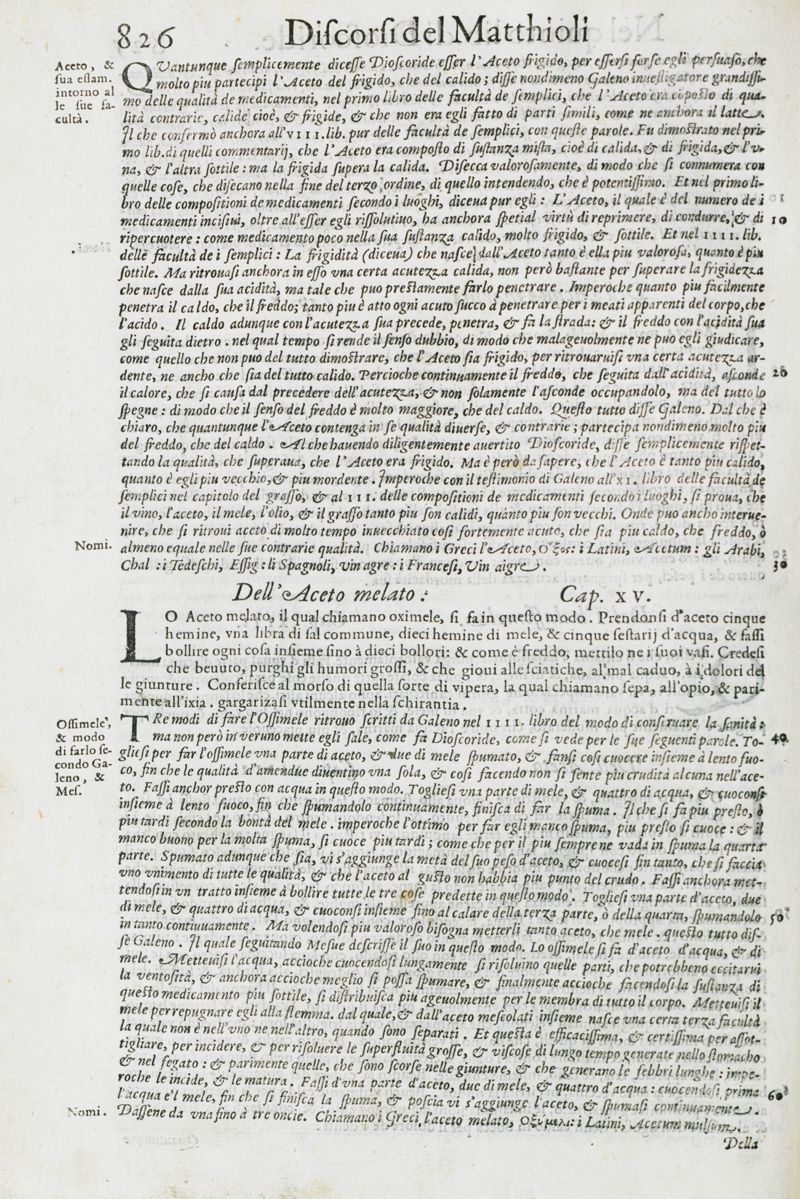 826 Diſcorſi del Matthioli
Aceto, &
ſua eſſam.
intorno al
le ſue fa-
cultà.
QVantunque ſemplicemente diceſſe Dioſcoride eſſer l'Aceto frigido, per eſſerſi forſe egli perſuaſo, che
molto piu partecipi l'Aceto del frigido, che del calido; diſſe nondimeno Galeno inueſtigatore grandiſſi-
mo delle qualità de medicamenti, nel primo libro delle facultà de ſemplici, che l'Aceto era cōpoſto di qua-
lità contrarie, calide cioè, & frigide, & che non era egli fatto di parti ſimili, come ne anchora il latte.
Il che confermò anchora all'VIII. lib. pur delle facultà de ſemplici, con queſte parole. Fu dimoſtrato nel pri-
mo lib. di quelli commentarij, che l'Aceto era compoſto di ſuſtanza miſta, cioè di calida, & di frigida, & l'v-
na, & l'altra ſottile: ma la frigida ſupera la calida. Diſecca valoroſamente, di modo che ſi connumera con
quelle coſe, che diſecano nella fine del terzo ordine, di quello intendendo, che è potentiſſimo. Et nel primo li-
bro delle compoſitioni de medicamenti ſecondo i luoghi, diceua pur egli: L'Aceto, il quale è del numero de i
medicamenti inciſiui, oltre all'eſſer egli riſſolutiuo, ha anchora ſpetial virtù di reprimere, di condurre, & di 10
ripercuotere: come medicamento poco nella ſua ſuſtanza calido, molto frigido, & ſottile. Et nel IIII. lib.
delle facultà de i ſemplici: La frigidità (diceua) che naſce dall'Aceto tanto è ella piu valoroſa, quanto è piu
ſottile. Ma ritrouaſi anchora in eſſo vna certa acutezza calida, non però baſtante per ſuperare la frigidezza
che naſce dalla ſua acidità, ma tale che puo preſtamente farlo penetrare. Imperoche quanto piu facilmente
penetra il caldo, che il freddo; tanto piu è atto ogni acuto ſucco à penetrare per i meati apparenti del corpo, che
l'acido. Il caldo adunque con l'acutezza ſua precede, penetra, & fa la ſtrada: & il freddo con l'acidità ſua
gli ſeguita dietro. nel qual tempo ſi rende il ſenſo dubbio, di modo che malageuolmente ne puo egli giudicare,
come quello che non puo del tutto dimoſtrare, che l'Aceto ſia frigido, per ritrouaruiſi vna certa acutezza ar-
dente, ne ancho che ſia del tutto calido. Percioche continuamente il freddo, che ſeguita dall'acidità, aſconde 20
il calore, che ſi cauſa dal precedere dell'acutezza, & non ſolamente l'aſconde occupandolo, ma del tutto lo
ſpegne: di modo che il ſenſo del freddo è molto maggiore, che del caldo. Queſto tutto diſſe Galeno. Dal che è
chiaro, che quantunque l'Aceto contenga in ſe qualità diuerſe, & contrarie; partecipa nondimeno molto piu
del freddo, che del caldo. Al che hauendo diligentemente auertito Dioſcoride, diſſe ſemplicemente riſpet-
tando la qualità, che ſuperaua, che l'Aceto era frigido. Ma è però da ſapere, che l'Aceto è tanto piu calido,
quanto è egli piu vecchio, & piu mordente. Imperoche con il teſtimonio di Galeno all'XI. libro delle facultà de
ſemplici nel capitolo del graſſo, & al III. delle compoſitioni de medicamenti ſecondo i luoghi, ſi proua, che
il vino, l'aceto, il mele, l'olio, & il graſſo tanto piu ſon calidi, quanto piu ſon vecchi. Onde puo ancho interue-
nire, che ſi ritroui aceto di molto tempo inuecchiato coſi fortemente acuto, che ſia piu caldo, che freddo, ò
Nomi. almeno equale nelle ſue contrarie qualità. Chiamano i Greci l'Aceto, Ὄξος: i Latini, Acetum: gli Arabi,
Chal: i Tedeſchi, Eſſig: li Spagnoli, vin agre: i Franceſi, Vin aigre. 30
Dell'Aceto melato: Cap. XV.
LO Aceto melato, il qual chiamano oximele, ſi fa in queſto modo. Prendonſi d'aceto cinque
hemine, vna libra di ſal commune, dieci hemine di mele, & cinque ſeſtarij d'acqua, & faſſi
bollire ogni coſa inſieme ſino à dieci bollori: & come è freddo, mettilo ne i ſuoi vaſi. Credeſi
che beuuto, purghi gli humori groſſi, & che gioui alle ſciatiche, al mal caduo, à i dolori del
le giunture. Conferiſce al morſo di quella ſorte di vipera, la qual chiamano ſepa, all'opio, & pari-
mente all'ixia. gargarizaſi vtilmente nella ſchirantia.
Oſſimele,
& modo
di farlo ſe-
condo Ga-
leno, &
Meſ.
TRe modi di fare l'Oſſimele ritrouo ſcritti da Galeno nel IIII. libro del modo di conſeruare la ſanità:
ma non però in veruno mette egli ſale, come fa Dioſcoride, come ſi vede per le ſue ſeguenti parole. To- 40
glieſi per far l'oſſimele vna parte di aceto, & due di mele ſpumato, & fanſi coſi cuocere inſieme à lento fuo-
co, fin che le qualità d'amendue diuentino vna ſola, & coſi facendo non ſi ſente piu crudità alcuna nell'ace-
to. Faſſi anchor preſto con acqua in queſto modo. Toglieſi vna parte di mele, & quattro di acqua, & cuoconſi
inſieme à lento fuoco, fin che ſpumandolo continuamente, finiſca di far la ſpuma. Il che ſi fa piu preſto, ò
piu tardi ſecondo la bontà del mele. imperoche l'ottimo per far egli manco ſpuma, piu preſto ſi cuoce: & il
manco buono per la molta ſpuma, ſi cuoce piu tardi; come che per il piu ſempre ne vada in ſpuma la quarta
parte. Spumato adunque che ſia, vi s'aggiunge la metà del ſuo peſo d'aceto, & cuoceſi fin tanto, che ſi faccia
vno vnimento di tutte le qualità, & che l'aceto al guſto non habbia piu punto del crudo. Faſſi anchora met-
tendoſi in vn tratto inſieme à bollire tutte le tre coſe predette in queſto modo. Toglieſi vna parte d'aceto, due
di mele, & quattro di acqua, & cuoconſi inſieme fino al calare della terza parte, ò della quarta, ſpumandolo 50
in tanto continuamente. Ma volendoſi piu valoroſo biſogna metterli tanto aceto, che mele. queſto tutto diſ-
ſe Galeno. Il quale ſeguitando Meſue deſcriſſe il ſuo in queſto modo. Lo oſſimele ſi fa d'aceto d'acqua, & di
mele. Metteuiſi l'acqua, accioche cuocendoſi lungamente ſi riſoluino quelle parti, che potrebbeno eccitarui
la ventoſità, & anchora accioche meglio ſi poſſa ſpumare, & finalmente accioche facendoſi la ſuſtanza di
queſto medicamento piu ſottile, ſi diſtribuiſca piu ageuolmente per le membra di tutto il corpo. Metteuiſi il
mele per repugnare egli alla flemma. dal quale, & dall'aceto meſcolati inſieme naſce vna certa terza facultà
la quale non è nell'vno ne nell'altro, quando ſono ſeparati. Et queſta è efficaciſſima, & certiſſima per aſſot-
tigliare, per incidere, & per riſoluere le ſuperfluità groſſe, & viſcoſe di lungo tempo generate nello ſtomacho
& nel fegato: & parimente quelle, che ſono ſcorſe nelle giunture, & che generano le febbri lunghe: impe-
roche le incide, & le matura. Faſſi d'vna parte d'aceto, due di mele, & quattro d'acqua: cuocendoſi prima 60
l'acqua e'l mele, fin che ſi finiſca la ſpuma, & poſcia vi s'aggiunge l'aceto, & ſpumaſi continuamente.
Nomi. Daſſene da vna fino à tre oncie. Chiamano i Greci l'aceto melato, Ὀξύμελι: i Latini, Acetum mulſum.
Della